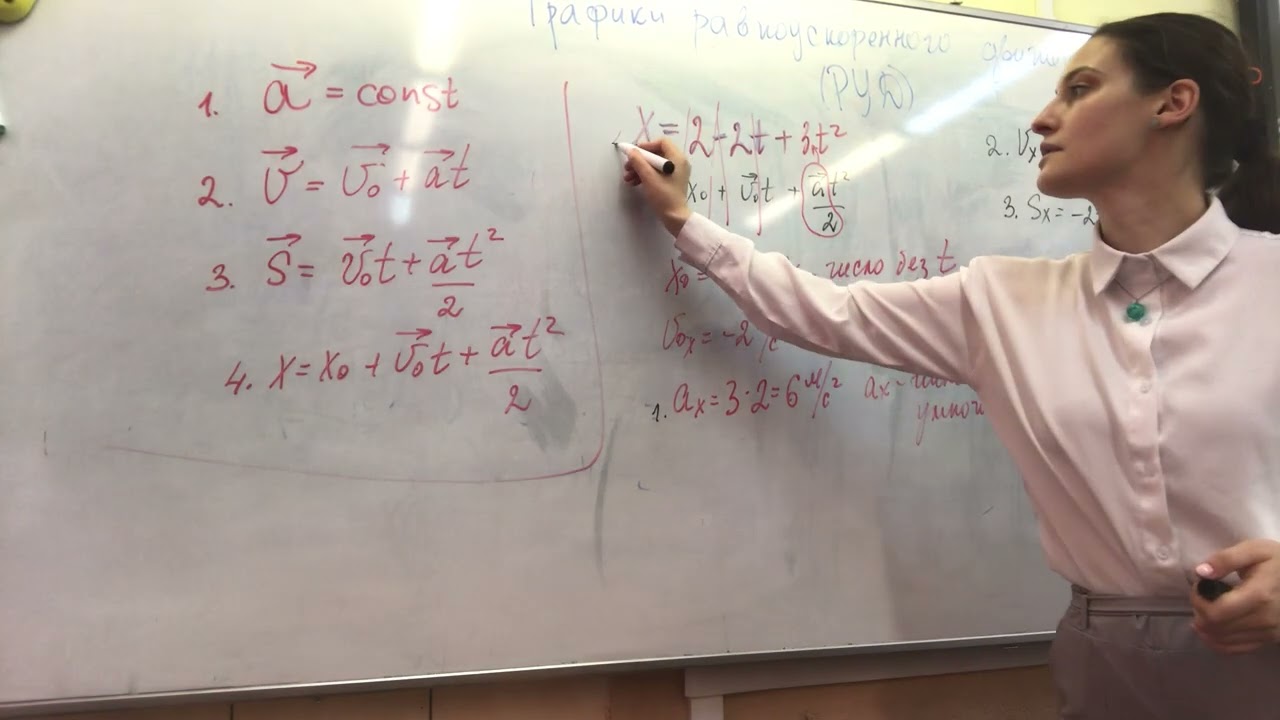 Графики равноускоренного
(РУД)
1. a⃗ = const
2. v⃗ = v⃗₀ + a⃗t
3. S⃗ = v⃗₀t + a⃗t²/2
4. x = x₀ + v⃗₀t + a⃗t²/2
x = 2 - 2t + 3t²
x₀ + v⃗₀t + a⃗t²/2
x₀ = число без t
v₀ₓ = -2
1. aₓ = 3·2 = 6 м/с² aₓ -
2. vₓ
3. Sₓ = -2